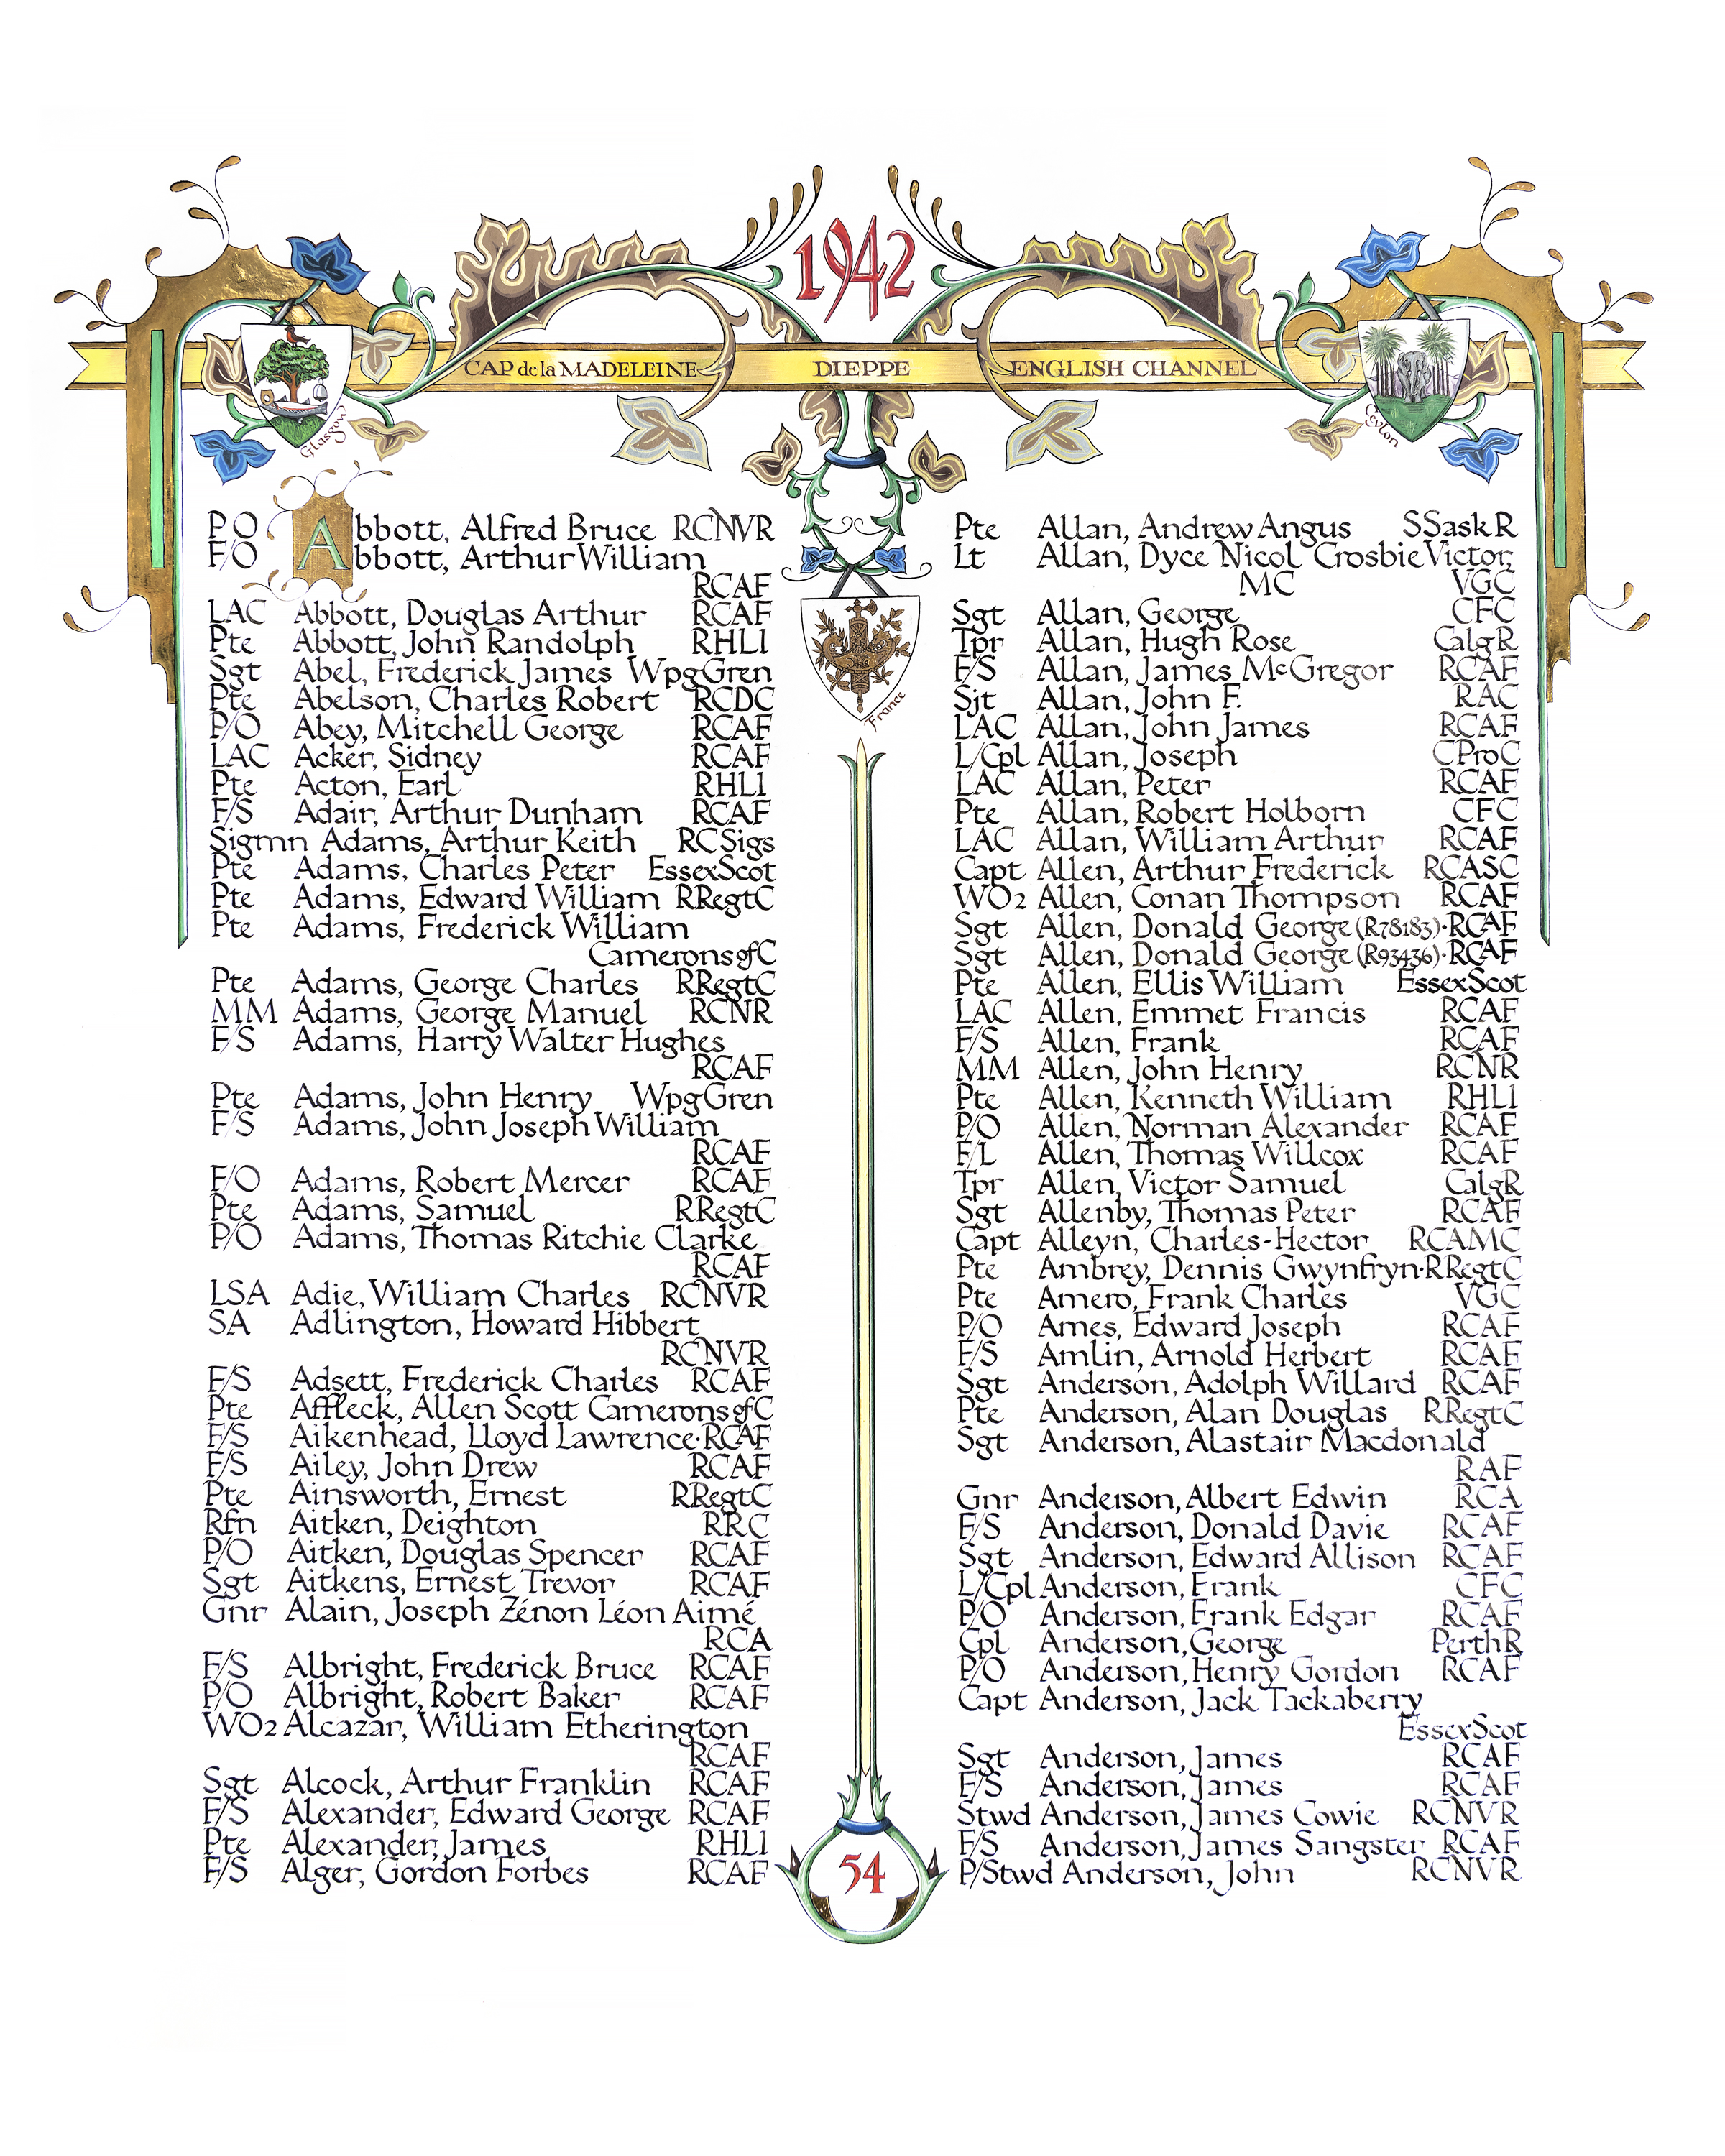 1942
CAP de la MADELEINE DIEPPE ENGLISH CHANNEL
Glasgow
Ceylon
France
PO Abbott, Alfred Bruce RCNVR
F/O Abbott, Arthur William
RCAF
LAC Abbott, Douglas Arthur RCAF
Pte Abbott, John Randolph RHLI
Sgt Abel, Frederick James WpgGren
Pte Abelson, Charles Robert RCDC
P/O Abey, Mitchell George RCAF
LAC Acker, Sidney RCAF
Pte Acton, Earl RHLI
F/S Adair, Arthur Dunham RCAF
Sigmn Adams, Arthur Keith RCSigs
Pte Adams, Charles Peter EssexScot
Pte Adams, Edward William RRegtC
Pte Adams, Frederick William
CameronsofC
Pte Adams, George Charles RRegtC
MM Adams, George Manuel RCNR
F/S Adams, Harry Walter Hughes
RCAF
Pte Adams, John Henry WpgGren
F/S Adams, John Joseph William
RCAF
F/O Adams, Robert Mercer RCAF
Pte Adams, Samuel RRegtC
P/O Adams, Thomas Ritchie Clarke
RCAF
LSA Adie, William Charles RCNVR
SA Adlington, Howard Hibbert
RCNVR
F/S Adsett, Frederick Charles RCAF
Pte Affleck, Allen Scott CameronsofC
F/S Aikenhead, Lloyd Lawrence·RCAF
F/S Ailey, John Drew RCAF
Pte Ainsworth, Ernest RRegtC
Rfn Aitken, Deighton RRC
P/O Aitken, Douglas Spencer RCAF
Sgt Aitkens, Ernest Trevor RCAF
Gnr Alain, Joseph Zénon Léon Aimé
RCA
F/S Albright, Frederick Bruce RCAF
P/O Albright, Robert Baker RCAF
WO2 Alcazar, William Etherington
RCAF
Sgt Alcock, Arthur Franklin RCAF
F/S Alexander, Edward George RCAF
Pte Alexander, James RHLI
F/S Alger, Gordon Forbes RCAF
Pte Allan, Andrew Angus SSaskR
Lt Allan, Dyce Nicol Crosbie Victor,
MC VGC
Sgt Allan, George CFC
Tpr Allan, Hugh Rose CalgR
F/S Allan, James McGregor RCAF
Sjt Allan, John F. RAC
LAC Allan, John James RCAF
L/Cpl Allan, Joseph CProC
LAC Allan, Peter RCAF
Pte Allan, Robert Holborn CFC
LAC Allan, William Arthur RCAF
Capt Allen, Arthur Frederick RCASC
WO2 Allen, Conan Thompson RCAF
Sgt Allen, Donald George (R78183)·RCAF
Sgt Allen, Donald George (R93436)·RCAF
Pte Allen, Ellis William EssexScot
LAC Allen, Emmet Francis RCAF
F/S Allen, Frank RCAF
MM Allen, John Henry RCNR
Pte Allen, Kenneth William RHLI
P/O Allen, Norman Alexander RCAF
F/L Allen, Thomas Willcox RCAF
Tpr Allen, Victor Samuel CalgR
Sgt Allenby, Thomas Peter RCAF
Capt Alleyn, Charles-Hector RCAMC
Pte Ambrey, Dennis Gwynfryn·RRegtC
Pte Amero, Frank Charles VGC
P/O Ames, Edward Joseph RCAF
F/S Amlin, Arnold Herbert RCAF
Sgt Anderson, Adolph Willard RCAF
Pte Anderson, Alan Douglas RRegtC
Sgt Anderson, Alastair Macdonald
RAF
Gnr Anderson, Albert Edwin RCA
F/S Anderson, Donald Davie RCAF
Sgt Anderson, Edward Allison RCAF
L/Cpl Anderson, Frank CFC
P/O Anderson, Frank Edgar RCAF
Cpl Anderson, George PerthR
P/O Anderson, Henry Gordon RCAF
Capt Anderson, Jack Tackaberry
EssexScot
Sgt Anderson, James RCAF
F/S Anderson, James RCAF
Stwd Anderson, James Cowie RCNVR
F/S Anderson, James Sangster RCAF
P/Stwd Anderson, John RCNVR
54